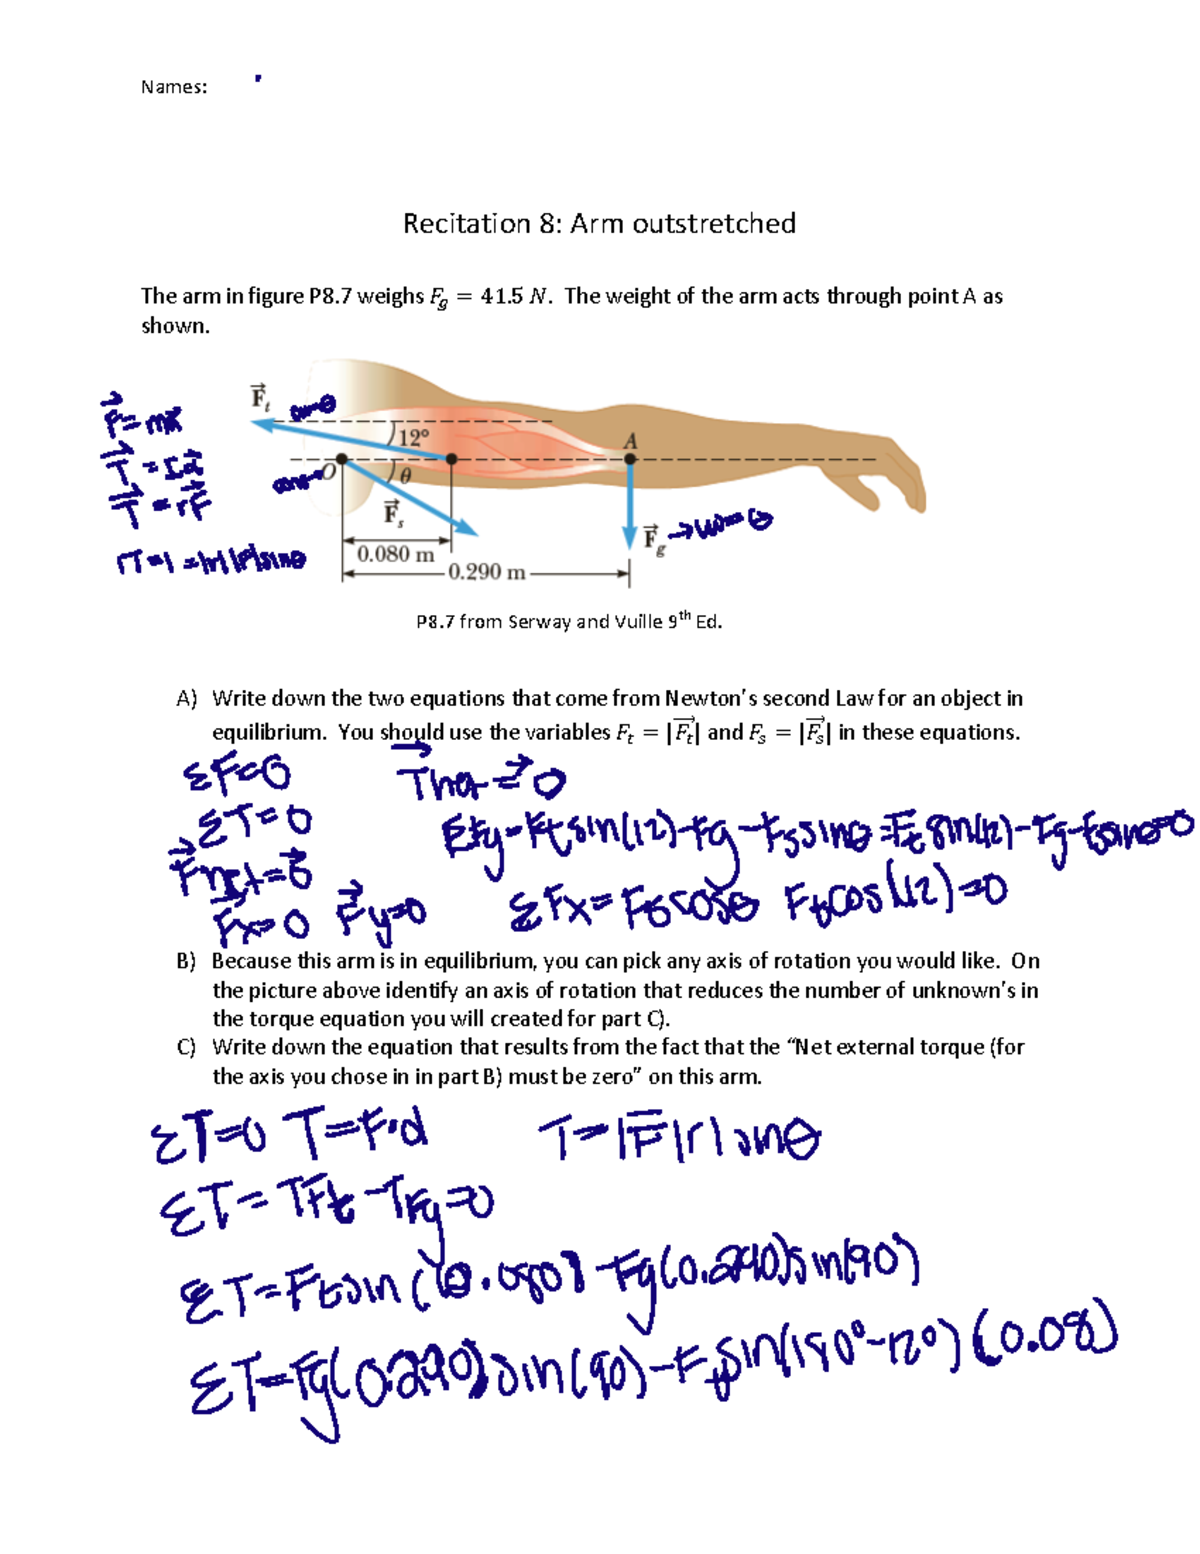 Names:
Recitation 8: Arm outstretched
The arm in figure P8.7 weighs F_g = 41.5 N. The weight of the arm acts through point A as
shown.
F⃗_t
12°
A
O
θ
F⃗_s
F⃗_g
0.080 m
0.290 m
T⃗ = Iα⃗
T⃗ = rF⃗
P8.7 from Serway and Vuille 9th Ed.
A) Write down the two equations that come from Newton's second Law for an object in
equilibrium. You should use the variables F_t = |F⃗_t| and F_s = |F⃗_s| in these equations.
ΣF=0
ΣT=0
F⃗net=0⃗
Fx=0 F⃗y=0
ΣFy=Ftsin(12)-Fg-Fssinθ=Ft sin(12)-Fg-Fssinθ=0
Ftcos(12)=0
B) Because this arm is in equilibrium, you can pick any axis of rotation you would like. On
the picture above identify an axis of rotation that reduces the number of unknown's in
the torque equation you will created for part C).
C) Write down the equation that results from the fact that the “Net external torque (for
the axis you chose in in part B) must be zero” on this arm.
ΣT=0 T=F·d T=|F||r|sinθ
ΣT=TFt-TFg=0
-Fg(0.290)sin(90)
ΣT=Fg(0.290)sin(90)-Ftsin(180°-12°)(0.08)